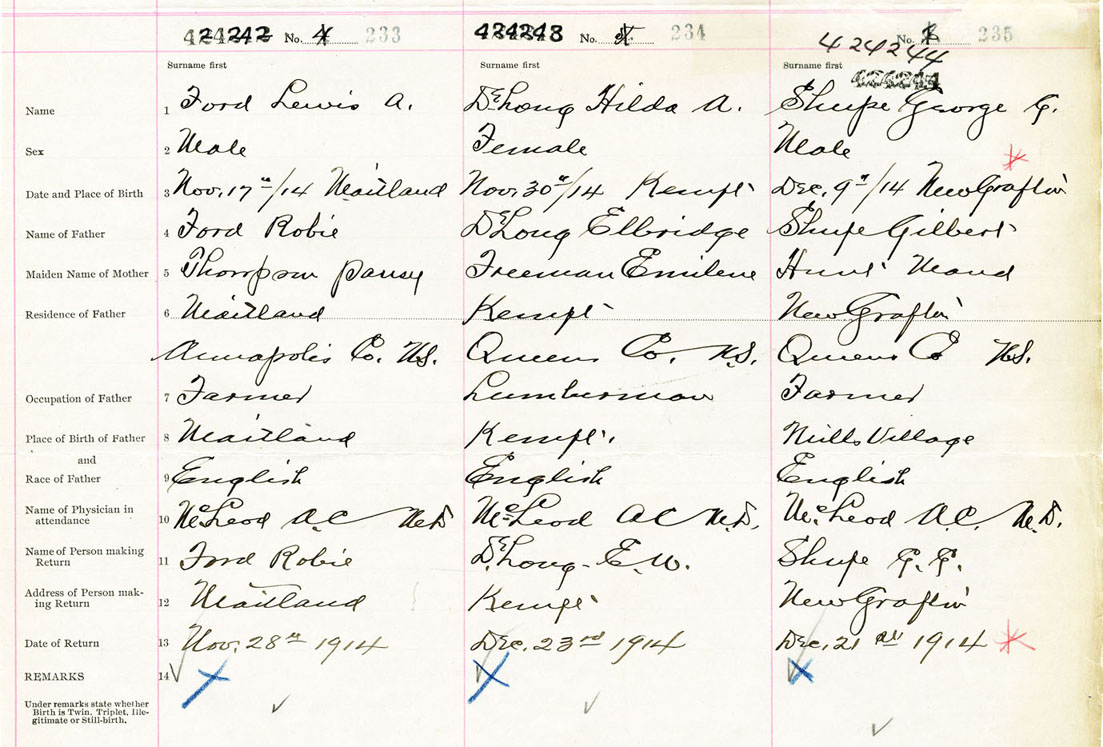 424242 No. 4 233 424243 No. 5 234 424244 No. 235
Surname first Surname first Surname first
Name 1 Ford Lewis A. DeLong Hilda A. Shupe George G.
Sex 2 Male Female Male
Date and Place of Birth 3 Nov. 17th/14 Maitland Nov. 30th/14 Kempt Dec. 9th/14 New Grafton
Name of Father 4 Ford Robie DeLong Elbridge Shupe Gilbert
Maiden Name of Mother 5 Thompson Pansy Freeman Emilene Hunt Maud
Residence of Father 6 Maitland Kempt New Grafton
Annapolis Co. N.S. Queens Co. N.S. Queens Co N.S.
Occupation of Father 7 Farmer Lumberman Farmer
Place of Birth of Father 8 Maitland Kempt. Mills Village
and
Race of Father 9 English English English
Name of Physician in
attendance 10 McLeod A.C. M.D. McLeod A C M.D. McLeod A.C. M.D.
Name of Person making
Return 11 Ford Robie DeLong E.W. Shupe G. G.
Address of Person mak-
ing Return 12 Maitland Kempt New Grafton
Date of Return 13 Nov. 28th 1914 Dec. 23rd 1914 Dec. 21st 1914
REMARKS 14
Under remarks state whether
Birth is Twin, Triplet, Ille-
gitimate or Still-birth.